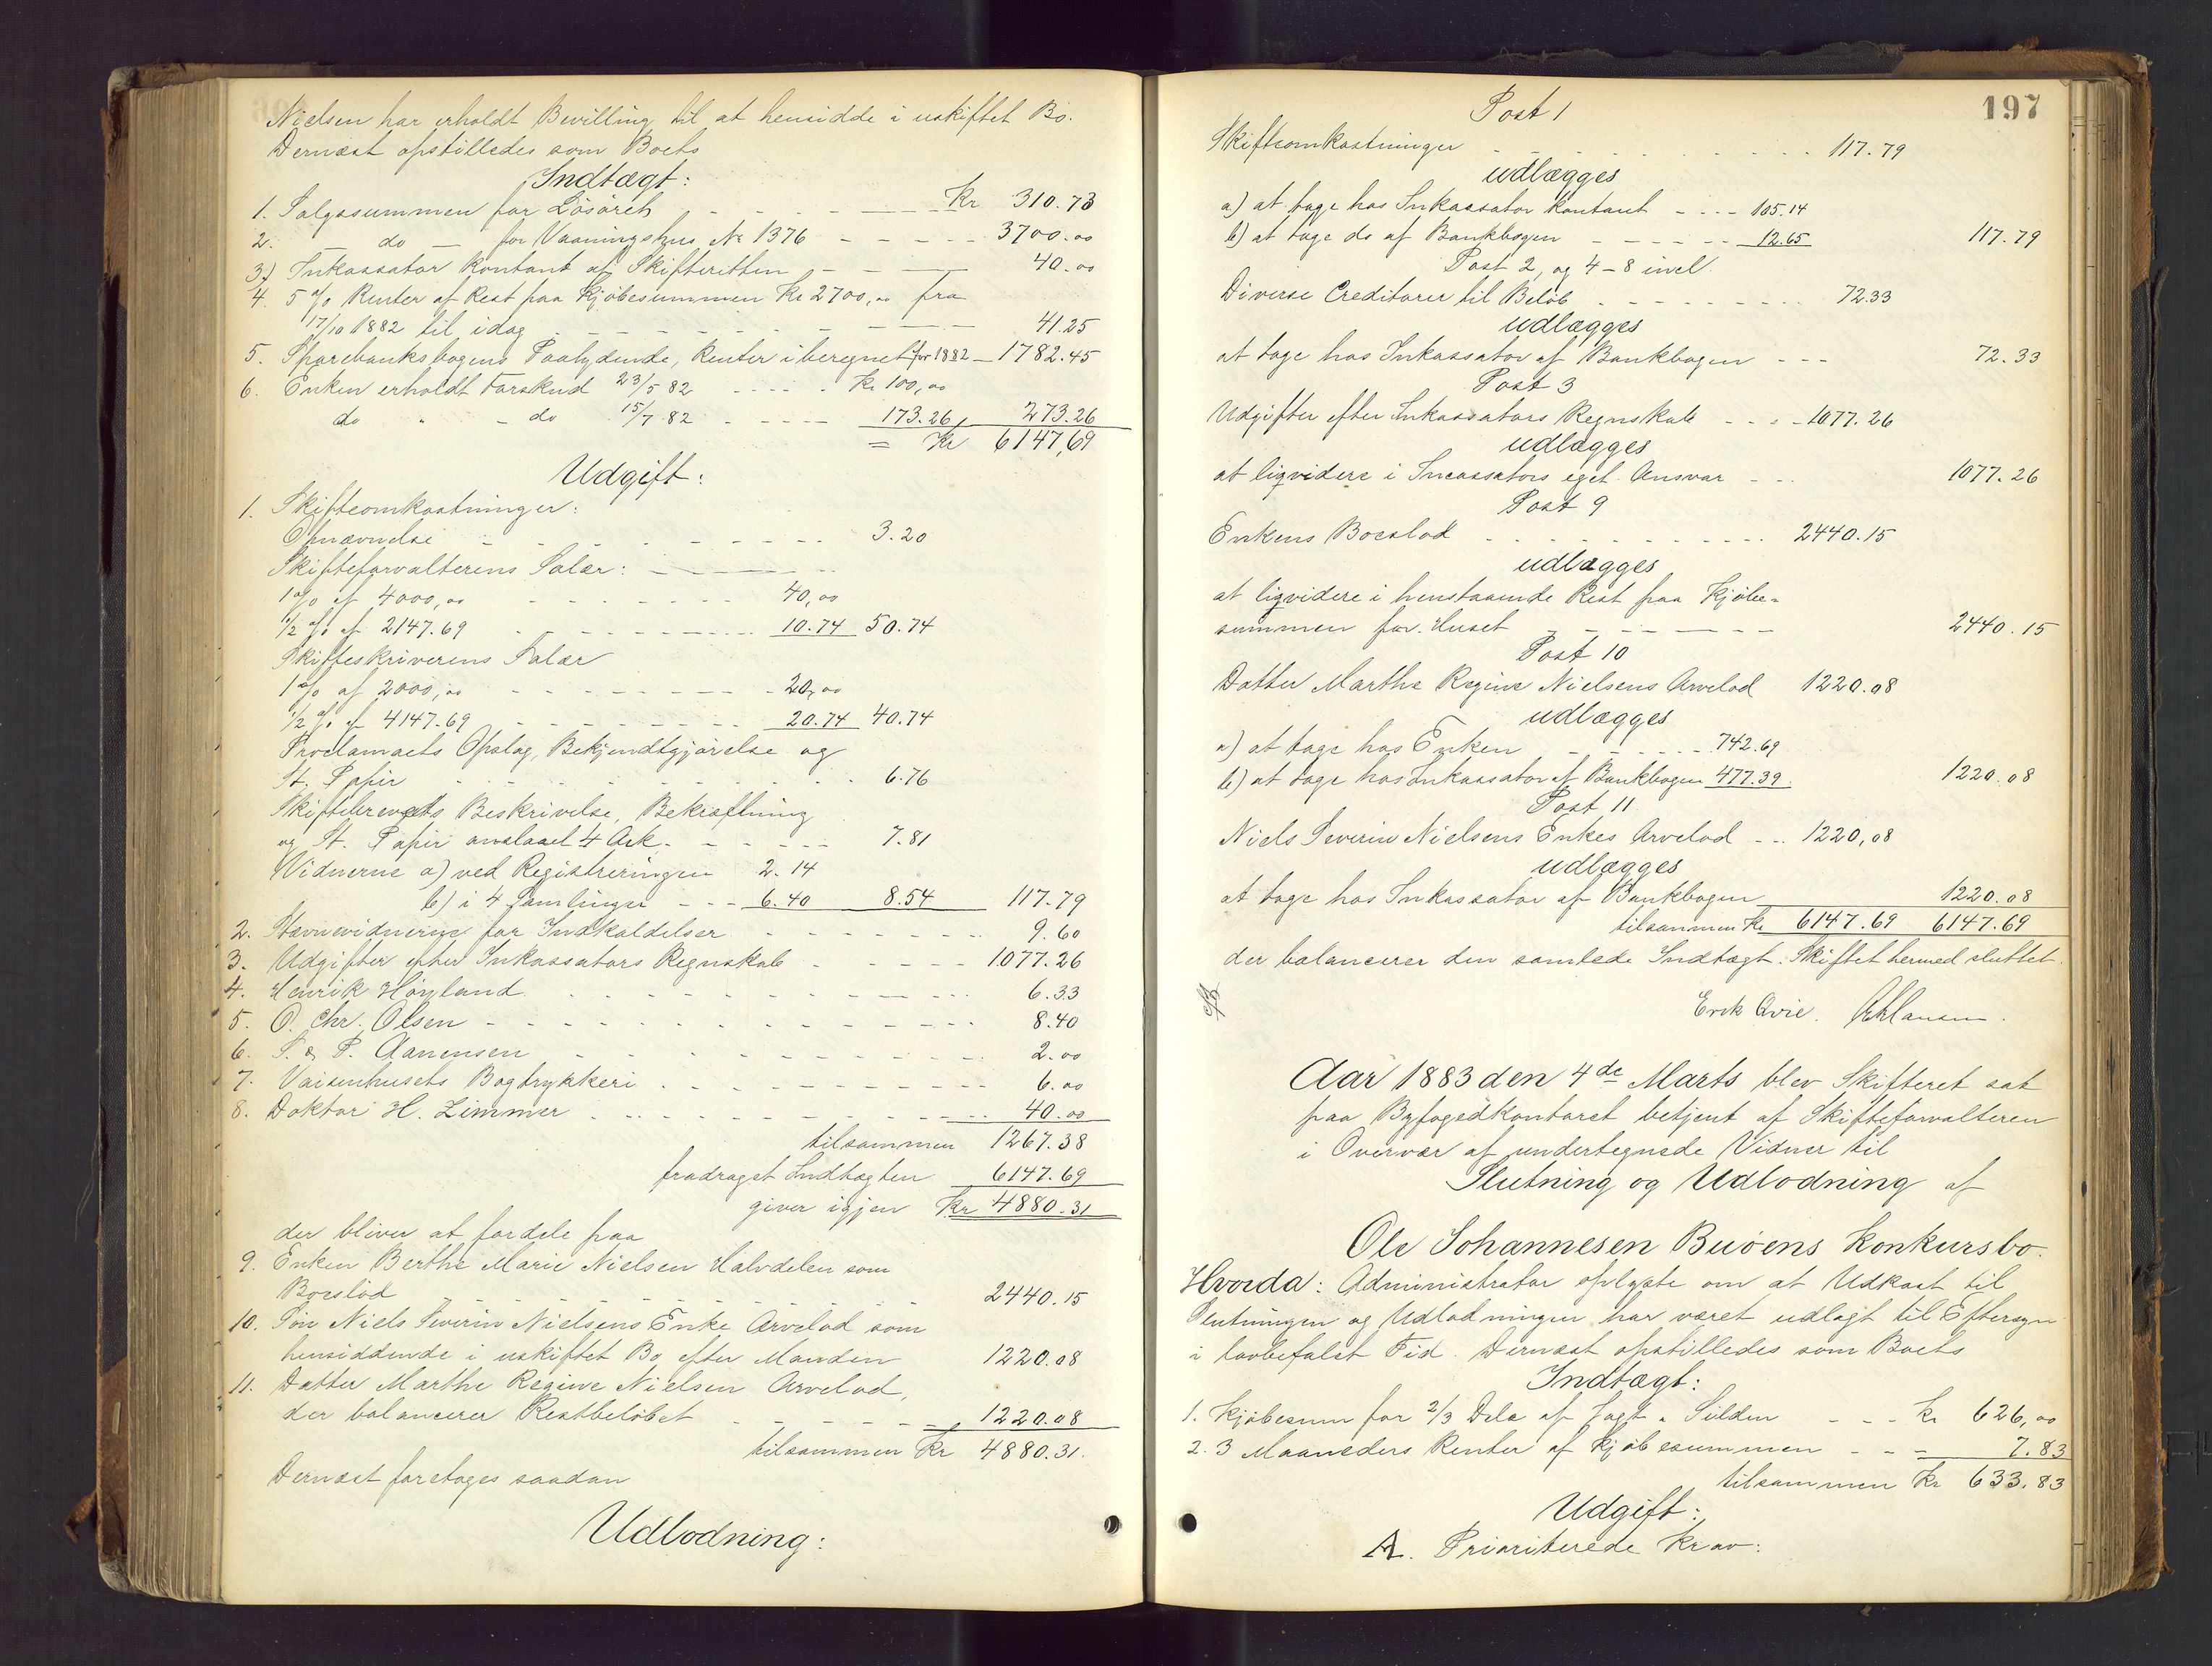 Nielsen har erholdt Bevilling til at hensidde i uskiftet Bo.
Dernæst opstilledes som Boets
Indtægt:
1. Salgssummen for Lösöret - - - - Kr 310.73
2. — do — for Vaaningshus No 1376 - - - - - 3700.00
3.) Inkassator kontant af Skifteretten - - - 40.00
4. 5 % Renter af Rest paa Kjöbesummen Kr 2700,00 fra
17/10 1882 til idag - - - - - - - 41.25
5. Sparebanksbogens Paalydende, Renter iberegnet for 1882 - 1782.45
6. Enken erholdt Forskud 23/5 82 - - - - Kr 100,00
do " - do 15/7 82 - - - - 173.26, 273.26
= Kr 6147,69
Udgift:
1. Skifteomkostninger:
Opnævnelse - - - - - - - 3.20
Skifteforvalterens Salær: - - -
1 % af 4000,00 - - - - - - 40,00
1/2 % af 2147.69 - - - - - - 10.74 50.74
Skifteskriverens Salær
1 % af 2000,00 - - - - - - 20,00
1/2 % af 4147.69 - - - - - - 20.74 40.74
Proclamaets Opslag, Bekjendtgjörelse og
St. Papir - - - - - - - - 6.76
Skiftebrevets Beskrivelse, Bekræftning
og St. Papir anslaaet 4 Ark. - - - - - 7.81
Vidnerne a) ved Registreringen 2.14
b) i 4 Samlinger - - - 6.40 8.54 117.79
2. Stævnevidnerne for Indkaldelser - - - - - - - 9.60
3. Udgifter efter Inkassators Regnskab - - - - - 1077.26
4. Henrik Höyland - - - - - - - - 6.33
5. O. Chr. Olsen - - - - - - - - - - 8.40
6. S. & P. Aanensen - - - - - - - - 2.00
7. Vaisenhusets Bogtrykkeri - - - - - - - - 6.00
8. Doktor H. Zimmer - - - - - - - - - 40.00
tilsammen 1267.38
fradraget Indtægten 6147.69
giver igjen Kr 4880.31
der bliver at fordele paa
9. Enken Berthe Marie Nielsen Halvdelen som
Boeslod - - - - - - - - 2440.15
10. Sön Niels Severin Nielsens Enke Arvelod som
hensiddende i uskiftet Bo efter Manden 1220.08
11. Datter Marthe Regine Nielsen Arvelod,
der balancerer Restbelöbet - - - - - 1220.08
tilsammen Kr 4880.31.
Dernæst foretoges saadan
Udlodning:
197
Post 1
Skifteomkostninger - - - - - - - 117.79
udlægges
a) at tage hos Inkassator kontant - - - - 105.14
b) at tage do af Bankbogen - - - - - 12.65 117.79
Post 2, og 4-8 incl.
Diverse Creditorer til Belöb - - - - - - - 72.33
udlægges
at tage hos Inkassator af Bankbogen - - - 72.33
Post 3
Udgifter efter Inkassators Regnskab - - - - 1077.26
udlægges
at liqvidere i Incassators eget Ansvar - - - 1077.26
Post 9
Enkens Boeslod - - - - - - - - - - 2440.15
udlægges
at liqvidere i henstaaende Rest paa Kjöbe-
summen for Huset - - - - - - 2440.15
Post 10
Datter Marthe Regine Nielsens Arvelod 1220.08
udlægges
a) at tage hos Enken - - - - - 742.69
b) at tage hos Inkassator af Bankbogen 477.39 1220.08
Post 11
Niels Severin Nielsens Enkes Arvelod - - - 1220,08
udlægges
at tage hos Inkassator af Bankbogen 1220.08
tilsammen Kr 6147.69 6147.69
der balancerer den samlede Indtægt. Skiftet hermed sluttet.
Erik Qvie.
Aar 1883 den 4de Marts blev Skifteret sat
paa Byfogedkontoret betjent af Skifteforvalteren
i Overvær af undertegnede Vidner til
Slutning og Udlodning af
Ole Johannesen Buöens Konkursbo.
Hvorda: Administrator oplyste om at Udkast til
Slutningen og Udlodningen har været udlagt til Eftersyn
i lovbefalet Tid. Dernæst opstilledes som Boets
Indtægt:
1. Kjöbesum for 2/3 Dele af Jagt " Silden - - - Kr 626,00
2. 3 Maaneders Renter af Kjöbesummen - - - 7.83
tilsammen Kr 633.83
Udgift:
A. Prioriterede Krav: